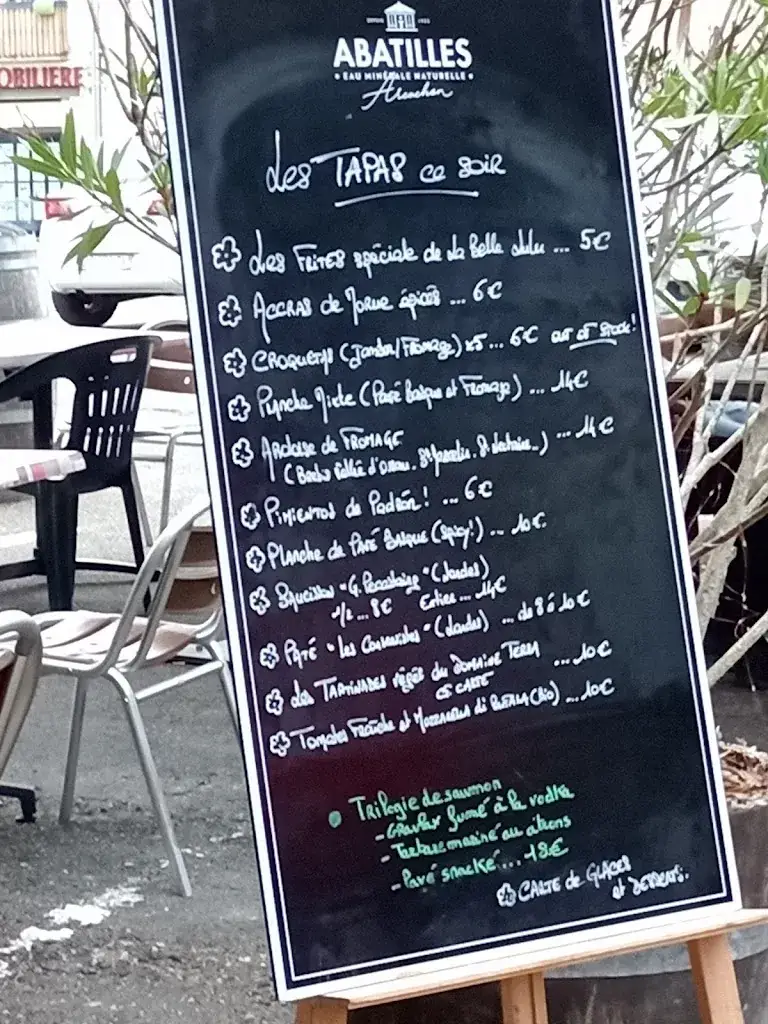 OBILIERE
DEPUIS 1925
ABATILLES
• EAU MINÉRALE NATURELLE •
Arcachon
Les TAPAS ce soir
Les FRITES spéciale de la Belle ... 5€
ACCRAS de Morue épicés ... 6€
CROQUETAS (Jambon/Fromage) x5 ... 6€ out of stock!
Planche Mixte (Pavé Basque et Fromage) ... 14€
Ardoise de FROMAGE
(Brebis Vallée d'Ossau. St Nectaire..) ... 14€
PIMIENTOS de Padrón! ... 6€
PLANCHE de PAVÉ BASQUE (Spicy!) ... 10€
SAUCISSON (Landes)
1/2 ... 8€ Entier ... 14€
PÂTÉ (Landes) ... de 8 à 10€
Les TARTINADES végés du DOMAINE TERRA ... 10€
CF CARTE
Tomates Fraîche et MOZZARELLA di BUFALA (bio) ... 10€
• Trilogie de saumon
- Gravlax fumé à la vodka
- Tartare mariné au citrons
- Pavé snacké ... 18€
CARTE de GLACES
et DESSERTS.